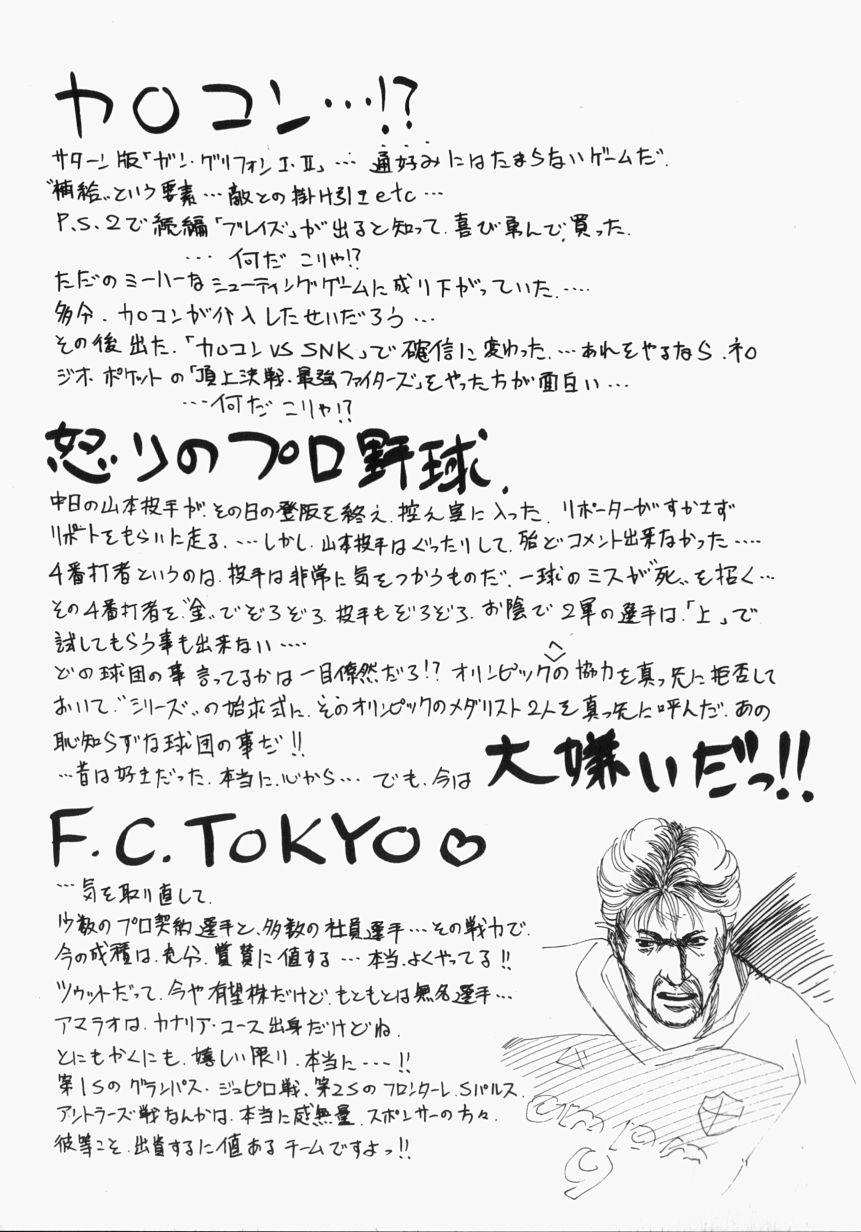 カロコン…!?
サターン版「ガン・グリフォンⅠ・Ⅱ」… 通好みにはたまらないゲームだ.
"補給"という要素…敵との掛け引きetc…
P.S.2で続編「ブレイズ」が出ると知って.喜び勇んで,買った.
… 何だ こりゃ!?
ただのミーハーなシューティングゲームに成り下がっていた.….
多分.カロコンが介入したせいだろう…
その後出た.「カロコンVS SNK」で確信に変わった.…あれをやるなら.ネオ
ジオ.ポケットの「頂上決戦.最強ファイターズ」をやった方が面白い…
…何だ こりゃ!?
怒りのプロ野球.
中日の山本投手が.その日の登板を終え.控え室に入った. リポーターがすかさず
リポートをもらいに走る. …しかし.山本投手はぐったりして.殆どコメント出来なかった….
4番打者というのは.投手は非常に気をつかうものだ.一球のミスが"死"を招く…
その4番打者を"金"でぞろぞろ.投手もぞろぞろ.お陰で2軍の選手は.「上」で
試してもらう事も出来ない….
どの球団の事言ってるかは一目僚然だろ!? オリンピックへの協力を真っ先に拒否して
おいて."シリーズ"の始球式に.そのオリンピックのメダリスト2人を真っ先に呼んだ.あの
恥知らずな球団の事だ!!
…昔は好きだった.本当に.心から… でも.今は 大嫌いだっ!!
F.C.TOKYO♡
…気を取り直して.
少数のプロ契約選手と.多数の社員選手…その戦力で.
今の成績は.充分.賞賛に値する…本当.よくやってる!!
ツゥットだって.今や有望株だけど.もともとは無名選手…
アマラオは.カナリア・ユース出身だけどね.
とにもかくにも.嬉しい限り.本当に…!!
第1Sのグランパス・ジュビロ戦、第2Sのフロンターレ.Sパルス.
アントラーズ戦なんかは.本当に感無量.スポンサーの方々.
彼等こそ.出資するに値あるチームですよっ!!
am pm
9